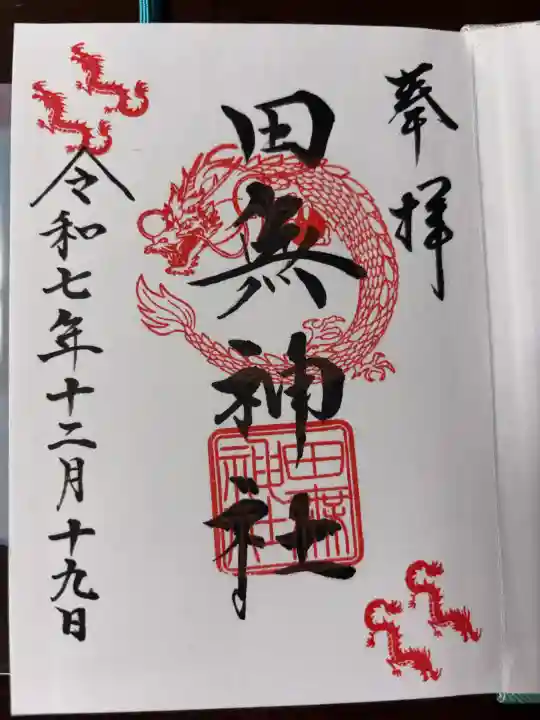 奉拝
田無神社
田無神社
令和七年十二月十九日